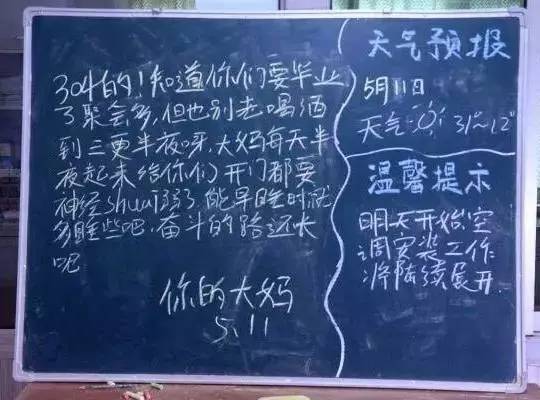 304的!知道你们要毕业
了聚会多,但也别老喝酒
到三更半夜呀,大妈每天半
夜起来给你们开门都要
神经shuai弱了,能早睡时就
多睡些吧,奋斗的路还长
呢
你的大妈
5.11
天气预报
5月11日
天气 31°~12°
温馨提示
明天开始空
调安装工作
将陆续展开